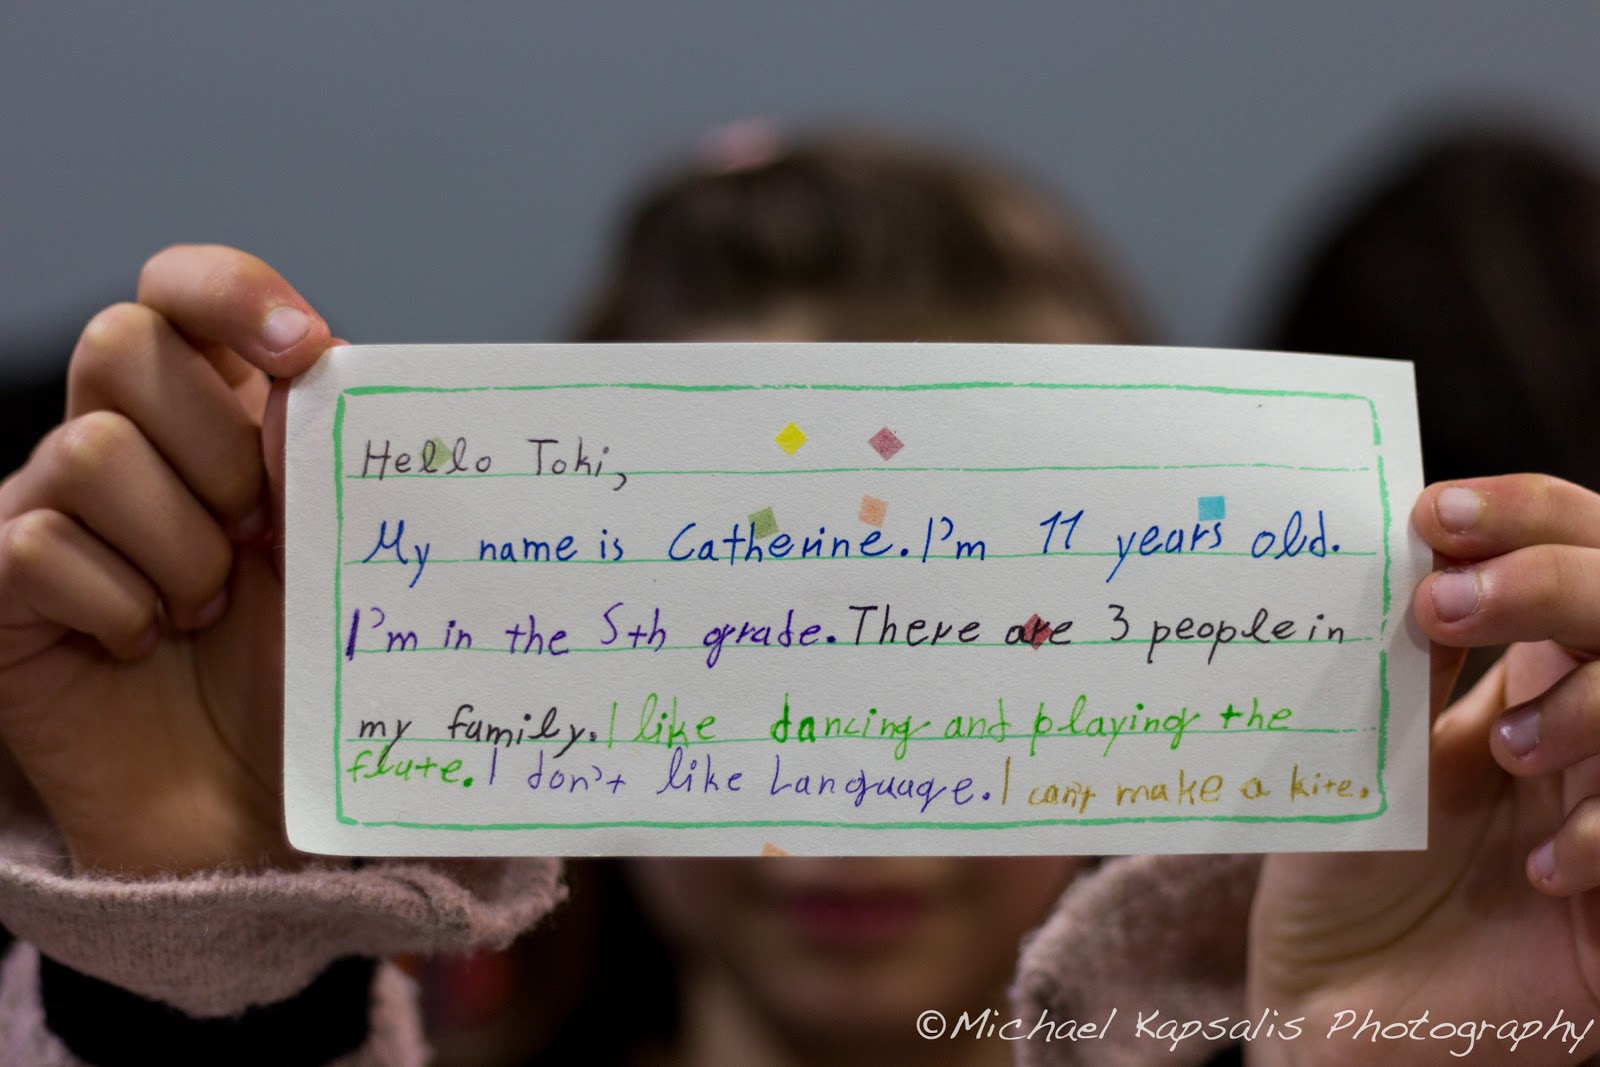 Hello Toki,
My name is Catherine. I'm 11 years old.
I'm in the 5th grade. There are 3 people in
my family. I like dancing and playing the
flute. I don't like Language. I can't make a kite.
©Michael Kapsalis Photography